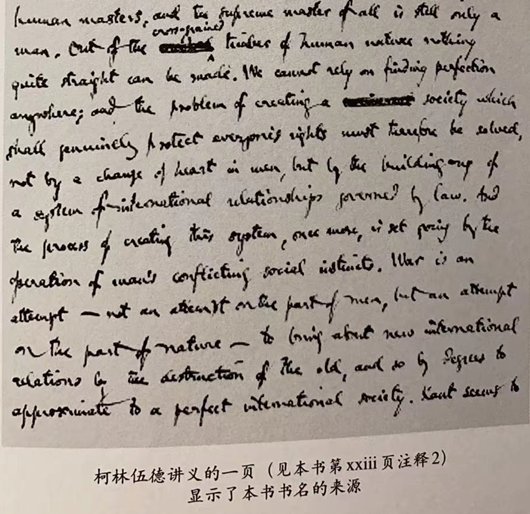 human masters, and the supreme master of all is still only a
man. Out of the cross-grained timber of human nature nothing
quite straight can be made. We cannot rely on finding perfection
anywhere; and the problem of creating a society which
shall genuinely protect everyone's rights must therefore be solved,
not by a change of heart in men, but by the building up of
a system of international relationships governed by law. And
the process of creating this system, once more, is set going by the
operation of man's conflicting social instincts. War is an
attempt — not an attempt on the part of men, but an attempt
on the part of nature — to bring about new international
relations by the destruction of the old, and so by degrees to
approximate to a perfect international society. Kant seems to
柯林伍德讲义的一页（见本书第xxiii页注释2）
显示了本书书名的来源